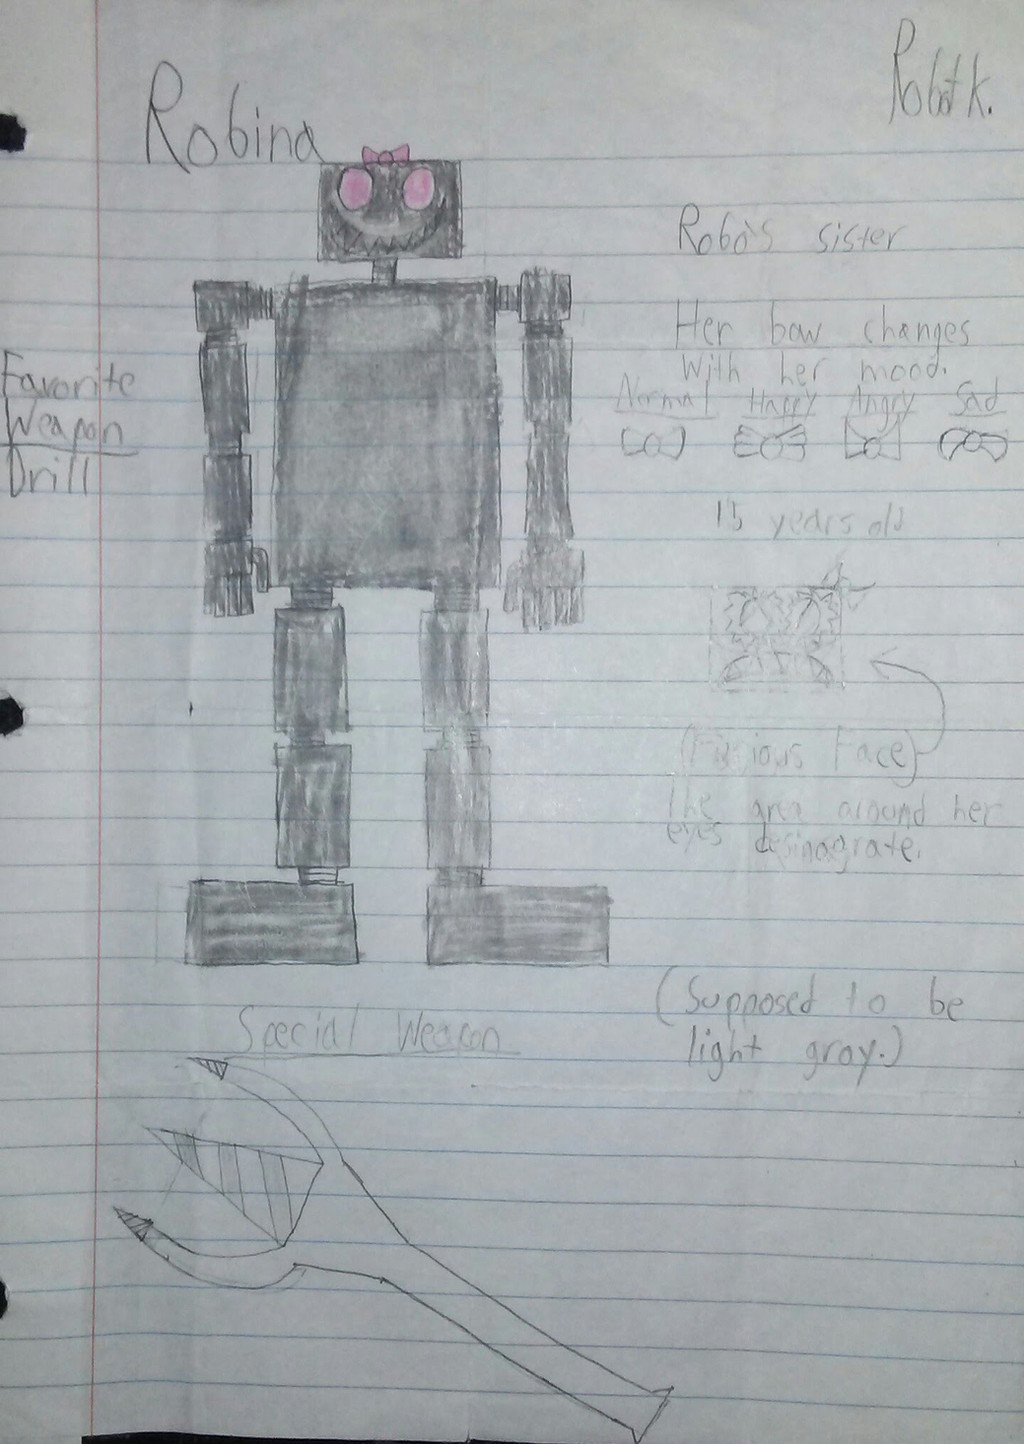 Robina
Robot K.
Robo's sister
Her bow changes
with her mood.
Normal Happy Angry Sad
Favorite
Weapon
Drill
15 years old
(Furious Face)
The area around her
eyes desinagrate.
(Supposed to be
light gray.)
Special Weapon